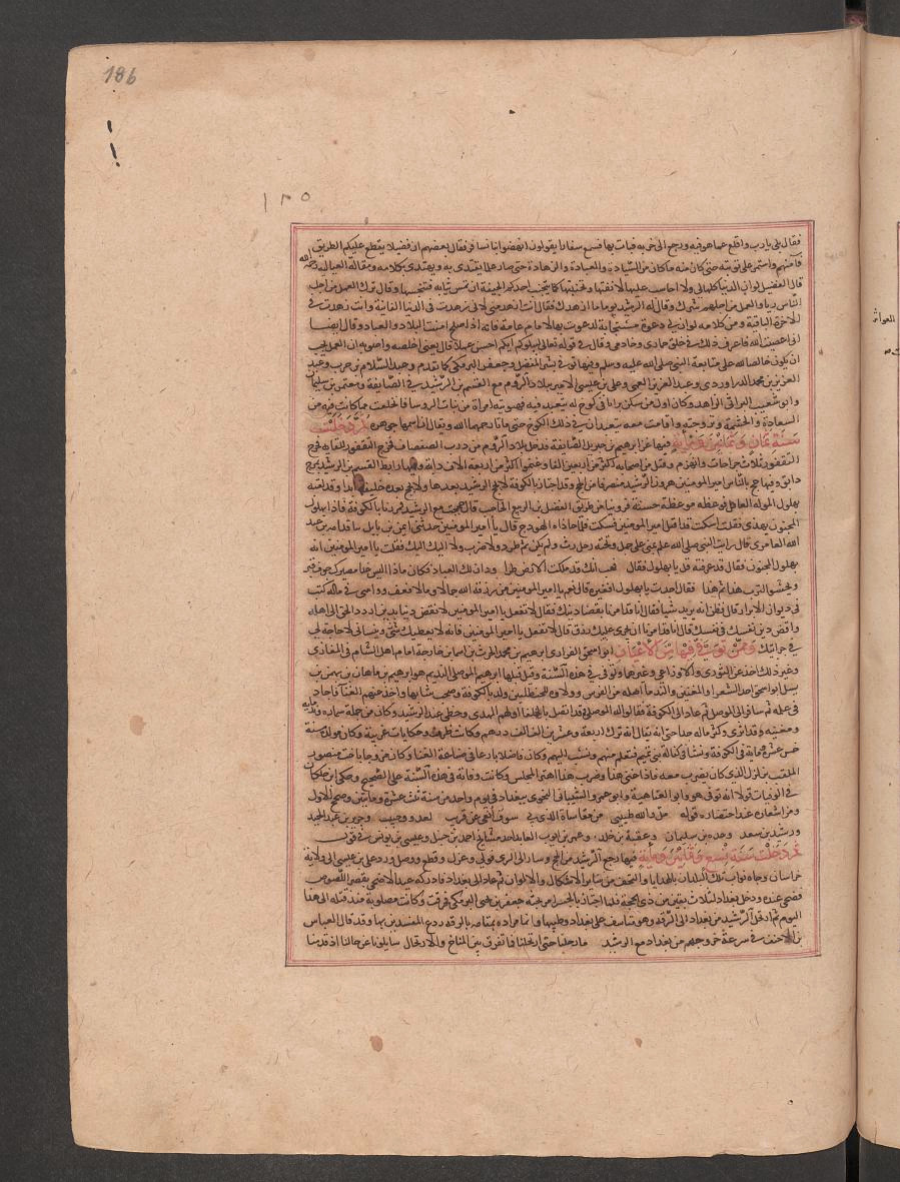 186
١٣٥
فقال بلى يارب واقلع عما هو فيه ورجع الى خربه فبات بها فسمع سفارا يقولون انهضوا بنا نسافر فقال بعضهم ان فضيلا يقطع عليكم الطريق
فآمنهم واستمر على توبته حتى كان منه ما كان من السيادة والعبادة والزهادة حتى صار علما يقتدى به ويهتدى بكلامه وبفعاله
قال الفضيل لو ان الدنيا كلها لى ولا احاسب عليها لا تقذرتها كما يتقذر احدكم الجيفة ان تمس ثيابه وقال ترك العمل من اجل
الناس رياء والعمل من اجلهم شرك وقال له الرشيد يوما ما ازهدك فقال انت ازهد منى لانى زهدت فى الدنيا الفانية وانت زهدت فى
الآخرة الباقية ومن كلامه لو ان لى دعوة مستجابة لدعوت بها للامام عامة فانه اذا صلح امنت البلاد والعباد وقال ايضا
انى اعصى الله فاعرف ذلك فى خلق حمارى وخادمى وقال فى قوله تعالى ليبلوكم ايكم احسن عملا قال يعنى اخلصه واصوبه ان العمل يجب
ان يكون خالصا لله على متابعة النبى صلى الله عليه وسلم وفيها توفى بشر بن المفضل وجعفر البرمكى كما تقدم وعبد السلام بن حرب وعبد
العزيز بن محمد الدراوردى وعبد العزيز العمى وعلى بن عيسى الامير ببلاد الروم مع القسم بن الرشيد فى الصايفة ومعتمر بن سليمان
وابو شعيب البراثى الزاهد وكان اول من سكن براثا فى كوخ له يتعبد فيه فهويته امراة من بنات الروسا فانخلعت مما كانت فيه من
السعادة والحشمة وتزوجته واقامت معه يتعبدان فى ذلك الكوخ حتى ماتا رحمهما الله ويقال ان اسمها جوهرة ثم دخلت
سنة ثمان وثمانين ومائة فيها غزا ابرهيم بن جبريل الصائفة فدخل بلاد الروم من درب الصفصاف فخرج النقفور للقايه فجرح
النقفور ثلاث جراحات وانهزم وقتل من اصحابه اكثر من اربعين الفا وغنموا اكثر من اربعة الاف دابة وفيها رابط القسم بن الرشيد بمرج
دابق وفيها حج بالناس امير المومنين هرون الرشيد منصرفا من الحج وقد اجتاز بالكوفة لم يحج الرشيد بعدها ولا حج بعده خليفة ابدا وقد لقيه
بهلول المولة العاقل فوعظه موعظة حسنة فروينا من طريق الفضل بن الربيع الحاجب قال حججت مع الرشيد فمررنا بالكوفة فاذا بهلول
المجنون يهذى فقلت اسكت فقد اقبل امير المومنين فسكت فلما حاذاه الهودج قال يا امير المومنين حدثنى ايمن بن نابل ثنا قدامه بن عبد
الله العامرى قال رايت النبى صلى الله عليه وسلم بمنى على جمل وتحته رحل رث ولم يكن ثم طرد ولا ضرب ولا اليك اليك فقلت يا امير المومنين انه
بهلول المجنون فقال قد عرفته قل يا بهلول فقال هب انك قد ملكت الارض طرا ودان لك العباد فكان ماذا اليس غدا مصيرك جوف قبر
ويحثو الترب هذا ثم هذا فقال اجدت يا بهلول افغيره قال نعم يا امير المومنين من رزقه الله جمالا ومالا فعف وواسى فى ماله كتب
فى ديوان الابرار قال فظن انه يريد شيا فقال انا قد امرنا بقضا دينك فقال لا تفعل يا امير المومنين لا تقض دينا بدين اردد الحق الى اهله
واقض دين نفسك من نفسك قال انا قد امرنا ان يجرى عليك رزق قال لا تفعل يا امير المومنين فانه لا يعطيك شى وينسانى لا حاجة لى
فى جرايتك وممن توفى فيها من الاعيان ابو اسحق الفزارى ابرهيم بن محمد بن الحرث بن اسما بن خارجة امام اهل الشام فى المغازى
وغير ذلك اخذ عن الثورى والاوزاعى وغيرهما وتوفى فى هذه السنة وقيل قبلها ابرهيم الموصلى النديم هو ابرهيم بن ماهان بن بهمن بن
نسك ابو اسحق احد الشعرا والمغنين والندما اصله من الفرس وولد بالكوفة وصحب شبابها واخذ عنهم الغنا فاجاد
فى علمه ثم سافر الى الموصل ثم عاد الى الكوفة فقالوا له الموصلى ثم اتصل بالخلفا اولهم المهدى وحظى عند الرشيد وكان من جملة سماره وندمايه
ومغنيه وقد اثرى وكثر ماله جدا حتى انه يقال انه ترك اربعة وعشرين الف الف درهم وكانت له طرف وحكايات غريبة وكان مولده سنة
خمس عشرة ومايه فى الكوفة ونشا فى كفالة بنى تميم فتعلم منهم ونسب اليهم وكان فاضلا بارعا فى صناعة الغنا وكان مزوجا باخت منصور
الملقب بزلزل الذى كان يضرب معه فاذا غنى هذا وضرب هذا اهتز المجلس وكانت وفاته فى هذه السنة على الصحيح وحكى ابن خلكان
فى الوفيات قولا انه توفى هو وابو العتاهية وابو عمرو الشيبانى النحوى ببغداد فى يوم واحد من سنة ثلث عشرة ومايتين وصحح الاول
ومن اشعاره عند احتضاره قوله مل والله طبيبى من مقاساة الذى بى سوف انعى عن قريب لعدو وحبيب وجرير بن عبد الحميد
ورشد بن سعد وعبدة بن سليمان وعقبة بن خلد وعمر بن ايوب العابد احد مشايخ احمد بن حنبل وعيسى بن يونس فى قول
ثم دخلت سنة تسع وثمانين ومائة فيها رجع الرشيد من الحج وسار الى الرى فولى وعزل وقطع ووصل ورد على بن عيسى الى ولاية
خراسان وجاه نواب تلك البلدان بالهدايا والتحف من ساير الاشكال والالوان ثم عاد الى بغداد فادركه عيد الاضحى بقصر اللصوص
فضحى عنده ودخل بغداد لثلاث بقين من ذى الحجة فلما اجتاز بالجسر امر بجثة جعفر بن يحيى البرمكى فحرقت وكانت مصلوبة منذ قتله الى هذا
اليوم ثم ارتحل الرشيد من بغداد الى الرقه وهو متاسف على بغداد وطيبها وانما مراده بمقامه بالرقه ردع المفسدين بها وقد قال العباس
بن الاحنف فى سرعة خروجهم من بغداد مع الرشيد ما رحلنا حتى ارتحلنا فما نفرق بين المناخ والارتحال سايلونا عن حالنا اذ قدمنا